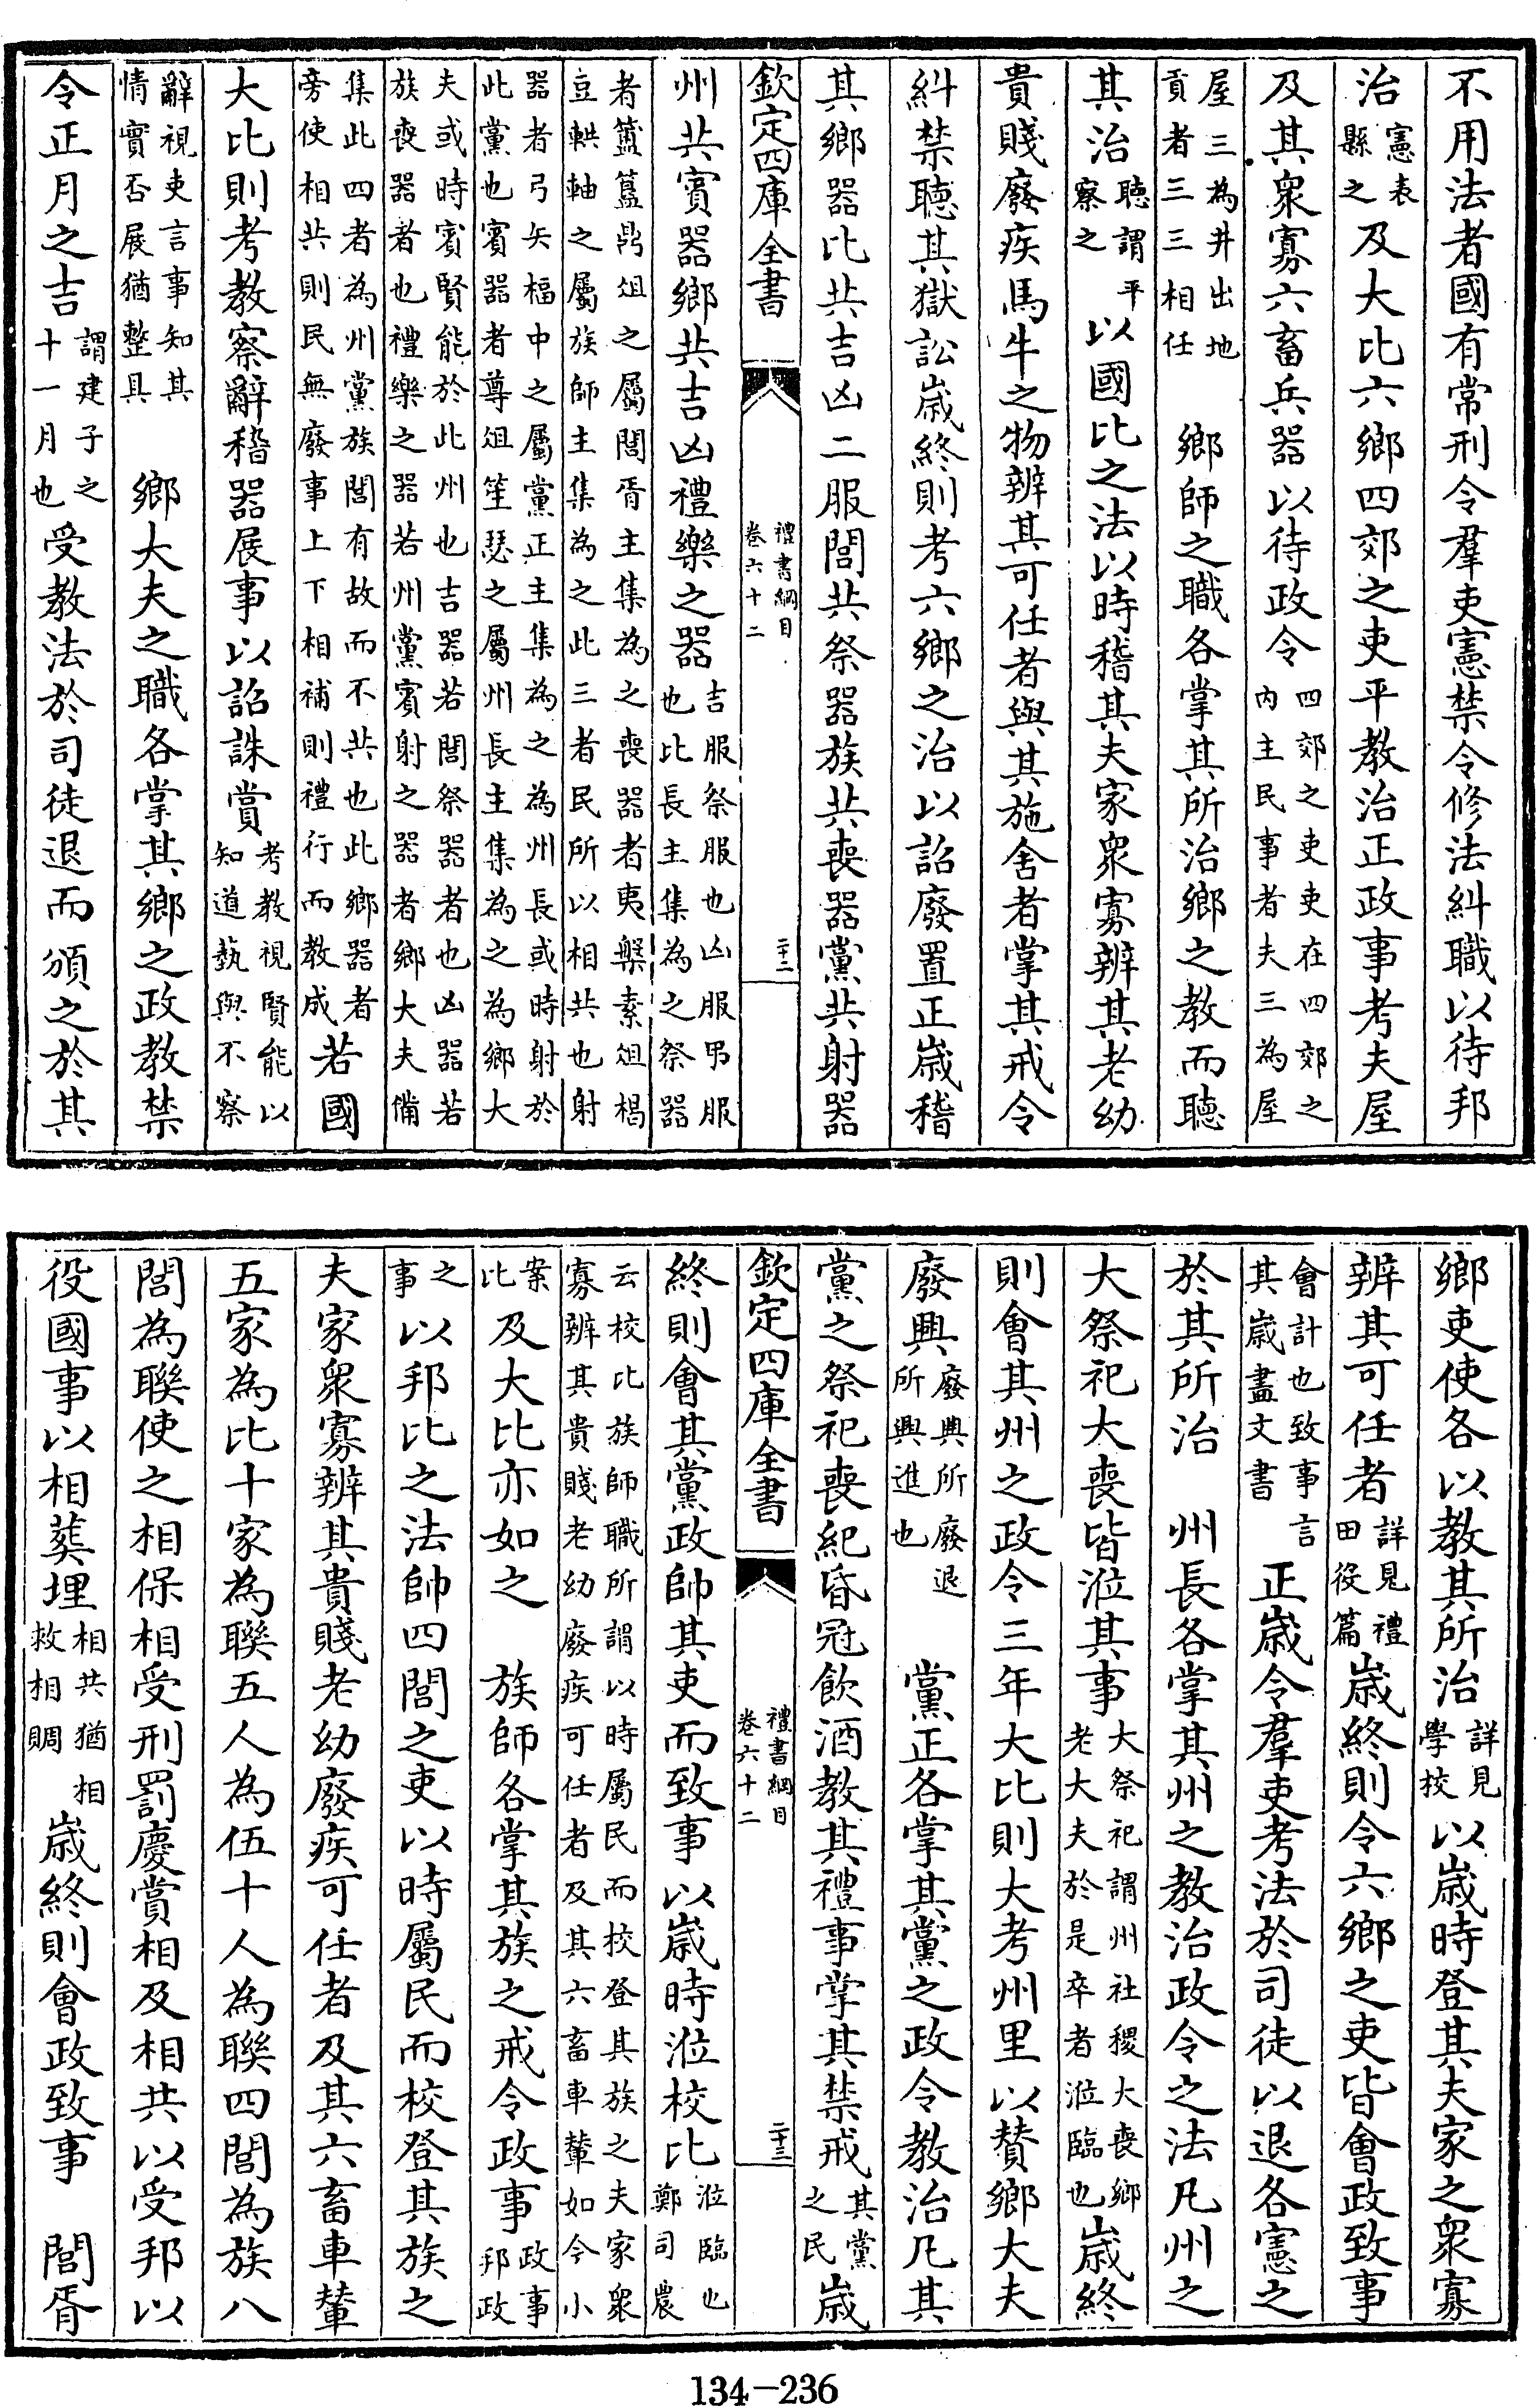 不用法者國有常刑令羣吏憲禁令修法糾職以待邦
治憲表縣之及大比六鄉四郊之吏平教治正政事考夫屋
及其衆寡六畜兵器以待政令四郊之吏吏在四郊之內主民事者夫三為屋
屋三為井出地貢者三三相任　鄉師之職各掌其所治鄉之教而聽
其治聽謂平察之以國比之法以時稽其夫家衆寡辨其老幼
貴賤廢疾馬牛之物辨其可任者與其施舍者掌其戒令
糾禁聽其獄訟歲終則考六鄉之治以詔廢置正歲稽
其鄉器比共吉凶二服閭共祭器族共喪器黨共射器
欽定四庫全書　禮書綱目卷六十二　二十二
州共賓器鄉共吉凶禮樂之器吉服祭服也凶服弔服也比長主集為之祭器
者簠簋鼎俎之屬閭胥主集為之喪器者夷槃素俎楬豆輁軸之屬族師主集為之此三者民所以相共也射
器者弓矢楅中之屬黨正主集為之為州長或時射於此黨也賓器者尊俎笙瑟之屬州長主集為之為鄉大
夫或時賓賢能於此州也吉器若閭祭器者也凶器若族喪器者也禮樂之器若州黨賓射之器者鄉大夫備
集此四者為州黨族閭有故而不共也此鄉器者旁使相共則民無廢事上下相補則禮行而教成若國
大比則考教察辭稽器展事以詔誅賞考教視賢能以知道藝與不察
辭視吏言事知其情實否展猶整具　鄉大夫之職各掌其鄉之政教禁
令正月之吉謂建子之十一月也受教法於司徒退而頒之於其
鄉吏使各以教其所治詳見學校以歲時登其夫家之衆寡
辨其可任者詳見禮田役篇歲終則令六鄉之吏皆會政致事
會計也致事言其歲盡文書　正歲令羣吏考法於司徒以退各憲之
於其所治　州長各掌其州之教治政令之法凡州之
大祭祀大喪皆涖其事大祭祀謂州社稷大喪鄉老大夫於是卒者涖臨也歲終
則會其州之政令三年大比則大考州里以贊鄉大夫
廢興廢興所廢退所興進也　黨正各掌其黨之政令教治凡其
黨之祭祀喪紀昏冠飲酒教其禮事掌其禁戒其黨之民歲
欽定四庫全書　禮書綱目卷六十二　二十三
終則會其黨政帥其吏而致事以歲時涖校比涖臨也鄭司農
云校比族師職所謂以時屬民而校登其族之夫家衆寡辨其貴賤老幼廢疾可任者及其六畜車輦如今小
案比及大比亦如之　族師各掌其族之戒令政事政事邦政
之事以邦比之法帥四閭之吏以時屬民而校登其族之
夫家衆寡辨其貴賤老幼廢疾可任者及其六畜車輦
五家為比十家為聯五人為伍十人為聯四閭為族八
閭為聯使之相保相受刑罰慶賞相及相共以受邦以
役國事以相葬埋相共猶相救相賙歲終則會政致事　閭胥
134-236